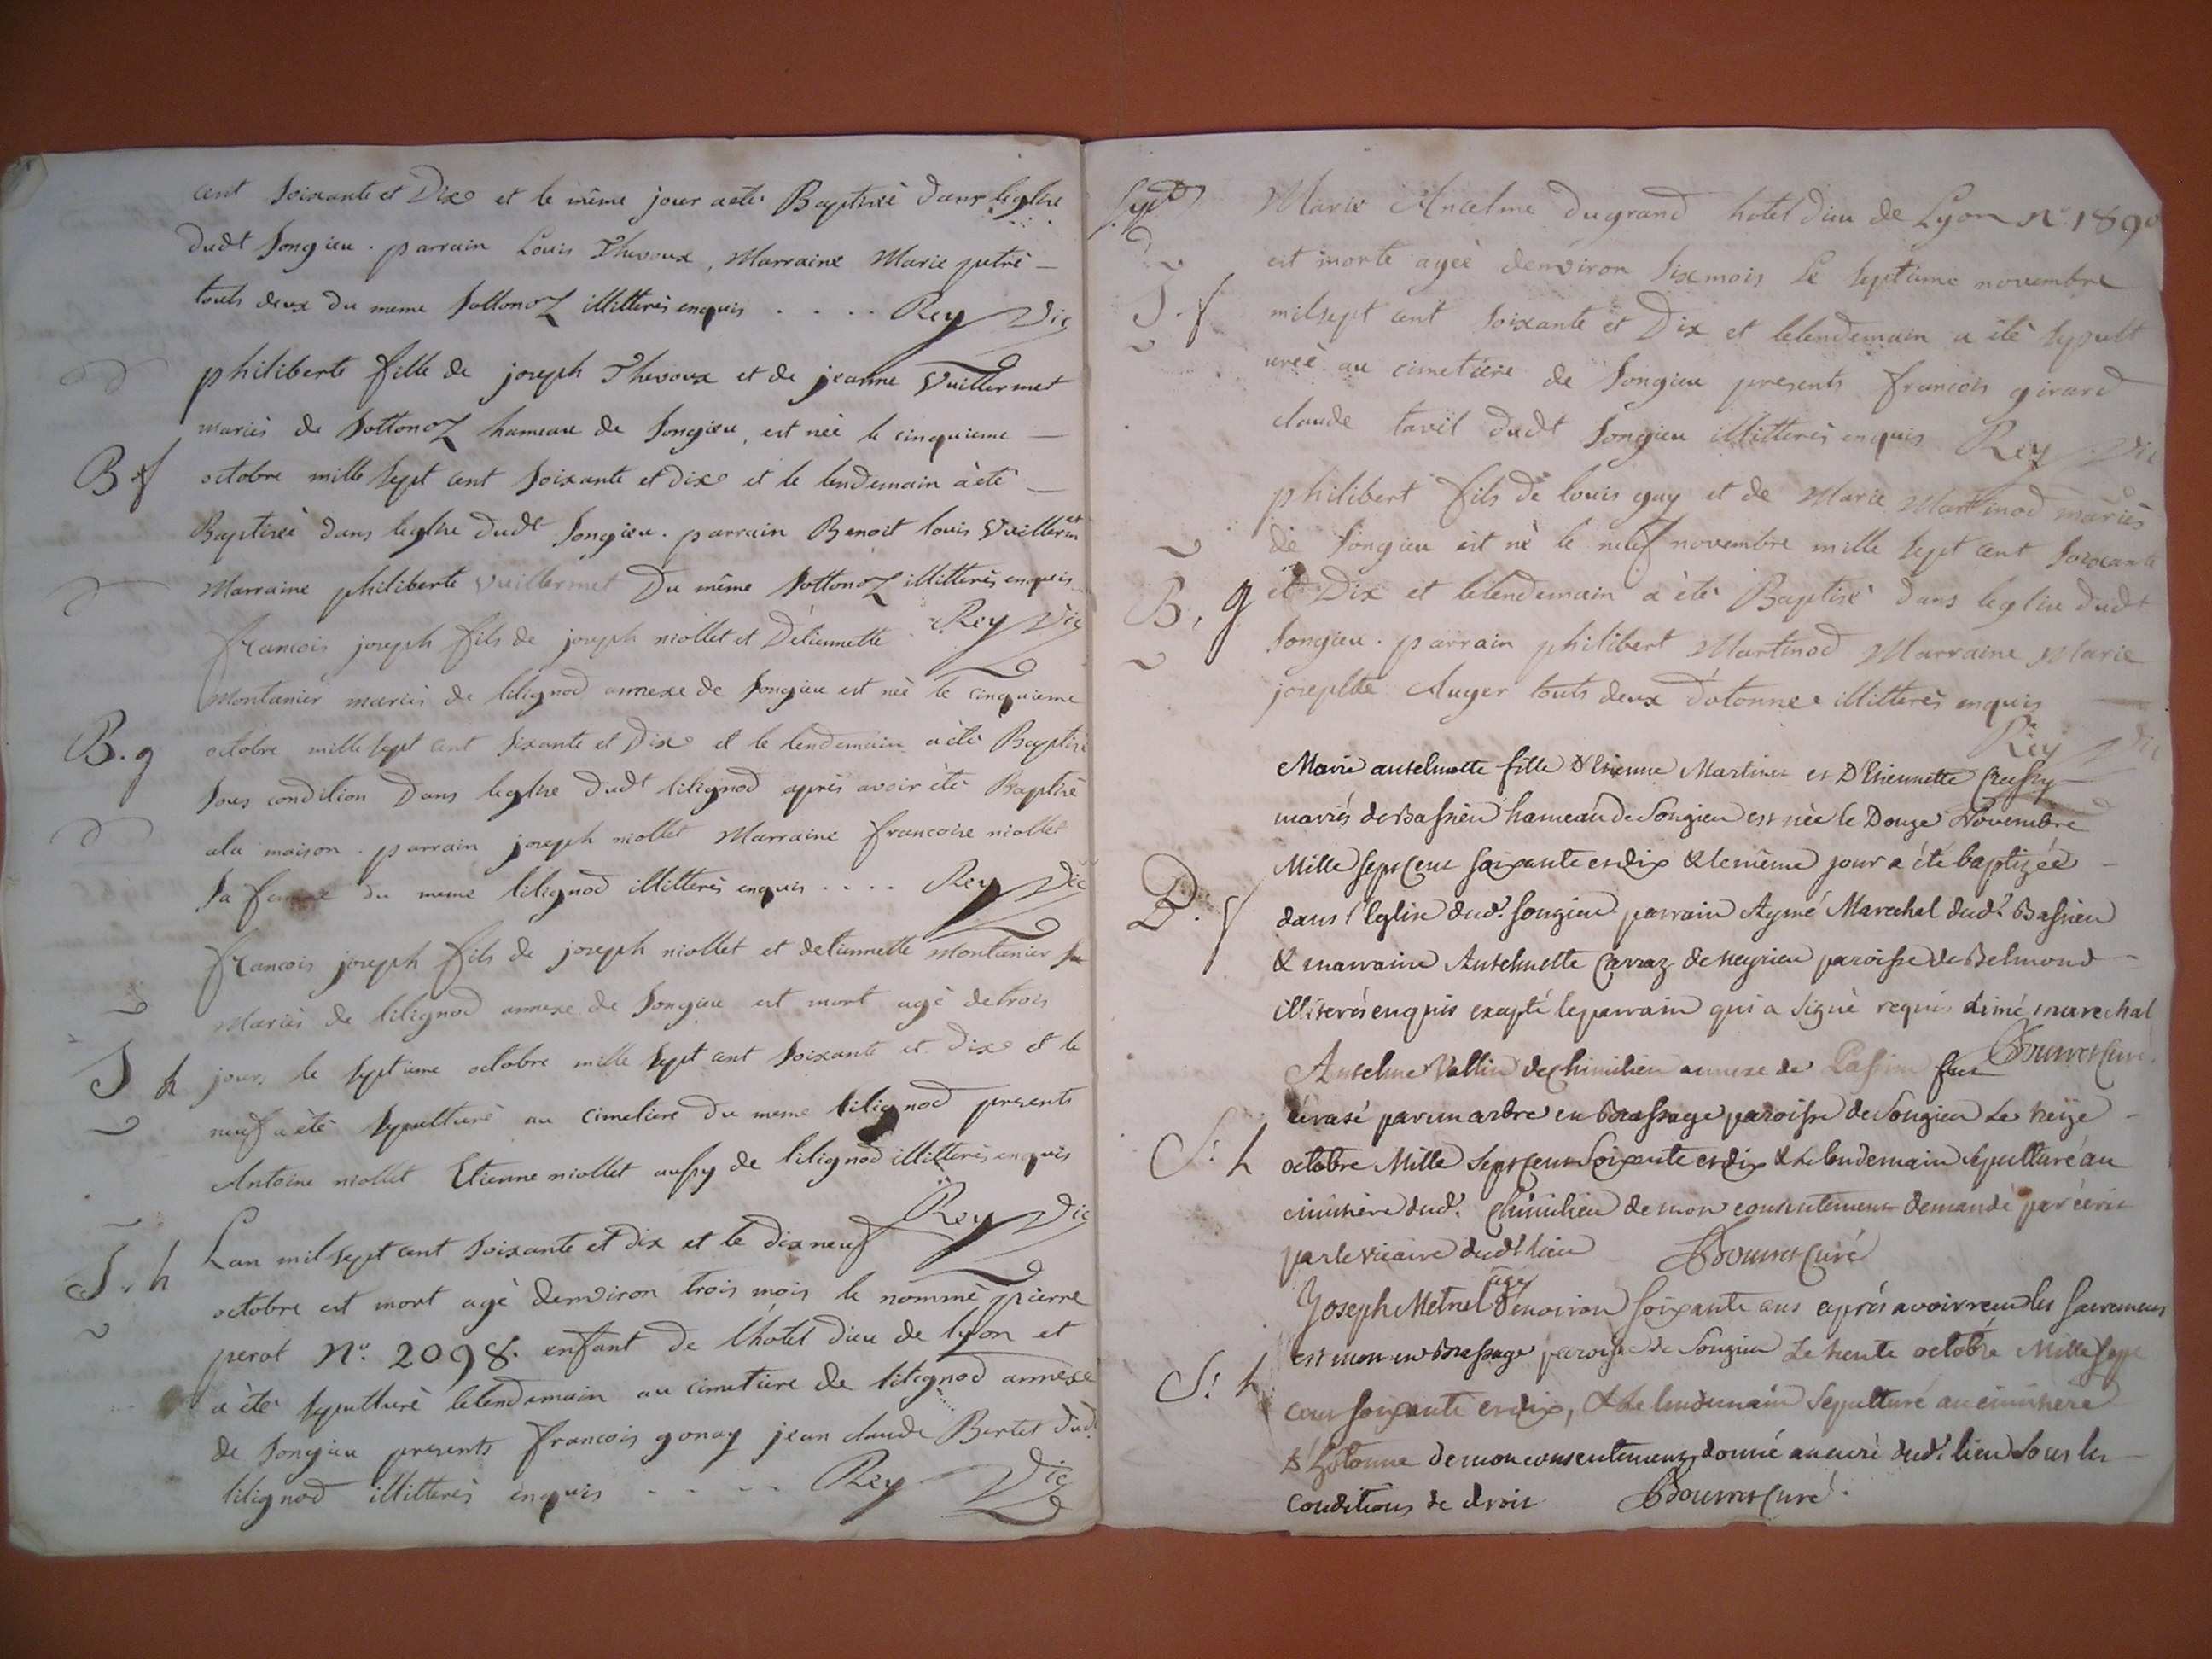 cent soixante et Dix et le même jour a eté Baptisé dans leglise
dudt Songieu. parrain Louis Thevoux, Marraine Marie
touts deux du meme Sottonoz illitterés enquis .... Rey Vic
philiberte fille de joseph Thevoux et de jeanne Vuillermet
mariés de Sottonoz hameau de Songieu, est née le cinquieme
B f
octobre mille sept cent soixante et dix et le lendemain à eté
Baptisée dans leglise dudt Songieu. parrain Benoit louis Vuillermet
Marraine philiberte vuillermet Du même Sottonoz illitterés enquis
Rey Vic
francois joseph fils de joseph niollet et D'etiennette
Montanier mariés de lilignod annexe de Songieu est née le cinquieme
B. g
octobre mille sept cent sixante et Dix et le lendemain a eté Baptisé
sous condition Dans leglise dudt lilignod après avoir été Baptisé
ala maison. parrain joseph niollet Marraine francoise niollet
sa femme du meme lilignod illitterés enquis .... Rey Vic
francois joseph fils de joseph niollet et detiennette Montanier sa
Mariés de lilignod annexe de Songieu est mort agé de trois
S h
jours le septieme octobre mille sept cent soixante et dix et le
neuf a eté sepulturé au cimetiere du meme lilignod presents
Antoine niollet Etienne niollet aussy de lilignod illitterés enquis
Rey Vic
S. h
Lan mil sept cent soixante et dix et le dix neuf
octobre est mort agé denviron trois mois le nommé pierre
perot N°. 2098. enfant de l'hotel dieu de lyon et
a été sepulturé le lendemain au cimetiere de lilignod annexe
de Songieu presents francois gonay jean claude Bertet dudt
lilignod illitterés enquis .... Rey Vic
Marie Anselme du grand hotel dieu de Lyon N° 1890
est morte ageé denviron six mois Le septieme novembre
S. f
mil sept cent soixante et Dix et le lendemain a été sepult
ureé au cimetiere de Songieu presents francois girard
claude tavil dudt Songieu illitterés enquis Rey Vic
philibert fils de louis guy et de Marie Martinod mariés
de Songieu est né le neuf novembre mille sept cent soixante
B. g
et Dix et le lendemain a été Baptisé dans leglise dudt
Songieu. parrain philibert Martinod Marraine Marie
josephte Auger touts deux d'otonne illitterés enquis
Rey Vic
Marie anselmette fille D'Etienne Martinet et D'Etiennette
mariés de Bassieu hameau de Songieu est née le Douze Novembre
Mille sept cent soixante et dix & le même jour a été baptizée
B. f
dans l'Eglise dud.t Songieu parrain Aymé Marechal dud.t Bassieu
& marraine Anselmette Carraz de neyrieu paroisse de Belmond
illiterés enquis exepté le parrain qui a signé requis aimé marechal
Bouvet Curé
Anselme Vallin de Chimilieu annexe de Passin fut
écrasé par un arbre en Brassage paroisse de Songieu Le treize
S. h
octobre Mille Sept cent Soixante et dix & Le lendemain Sepulturé au
cimitière dud.t Chimilieu de mon consentement demandé par écrit
par le vicaire dudt lieu Bouvet Curé
Joseph Metral agé D'environ soixante ans après avoir reçu les sacremens
est mort en Brassage paroisse de Songieu Le trente octobre Mille sept
S. h
cent soixante et dix, & Le lendemain Sepulturé au cimitiere
d'hotonne de mon consentement donné au curé dud.t lieu Sous les
conditions de droit Bouvet Curé.